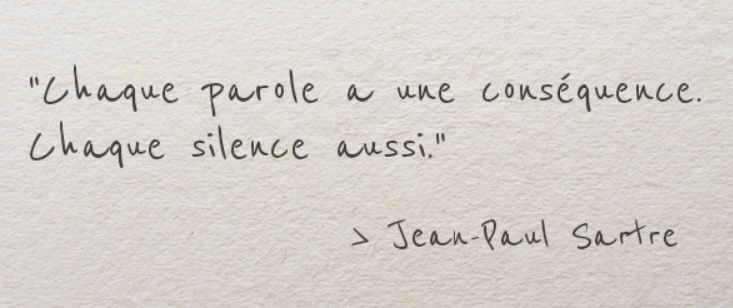 "Chaque parole a une conséquence.
Chaque silence aussi."
> Jean-Paul Sartre